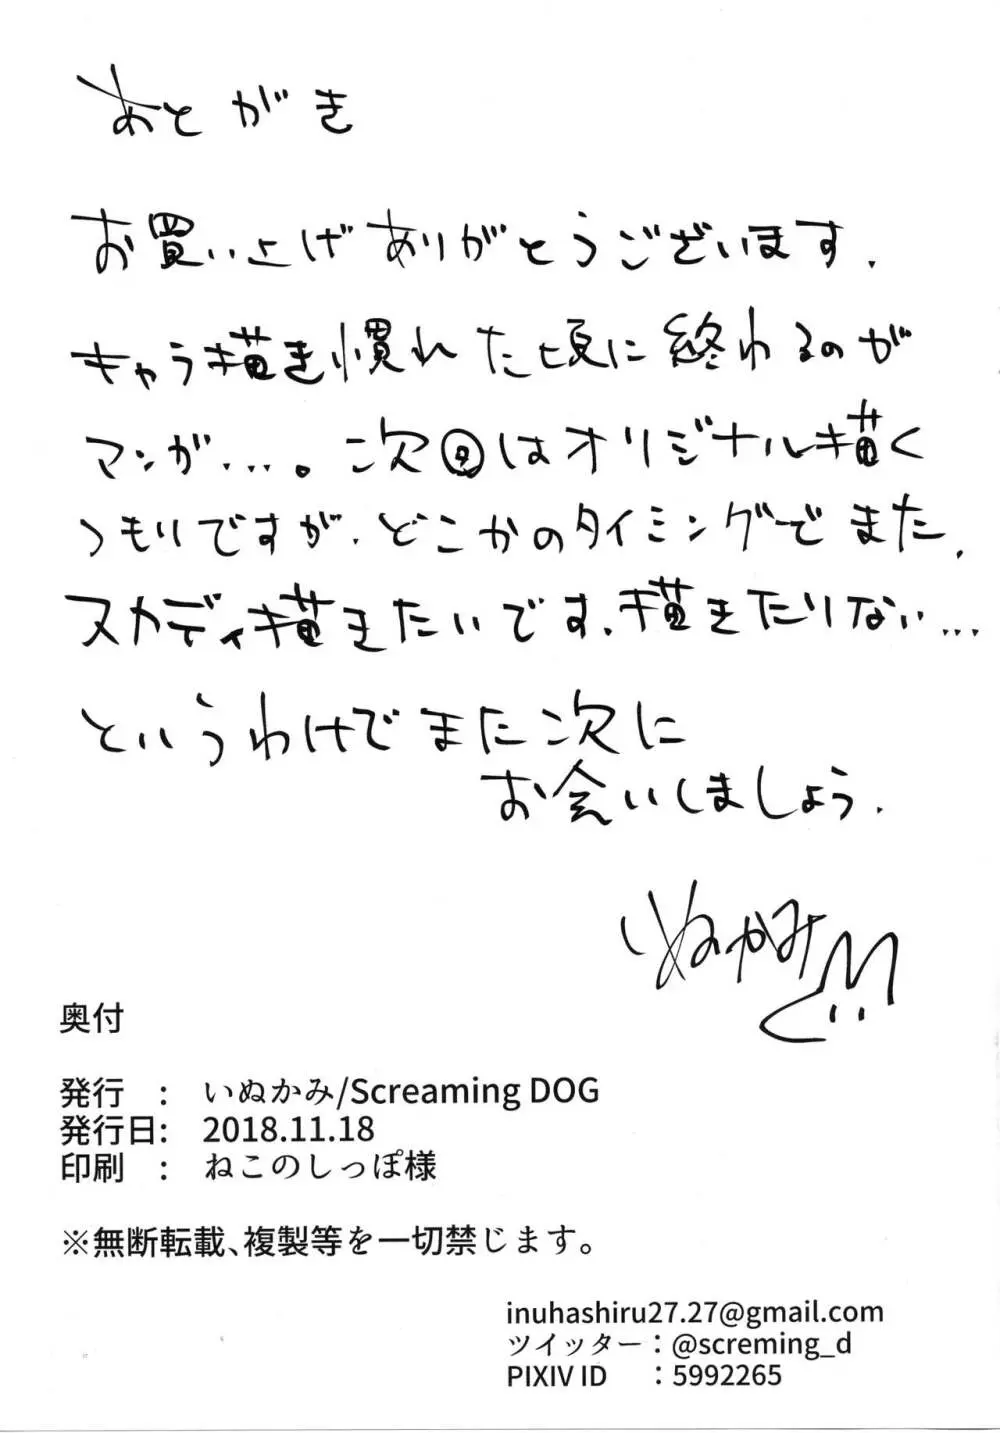 あとがき
お買い上げありがとうございます.
キャラ描き慣れた頃に終わるのが
マンガ…。次回はオリジナル描く
つもりですが、どこかのタイミングでまた、
スカディ描きたいです、描きたりない…
というわけでまた次に
お会いしましょう.
いぬかみ
奥付
発行　:　いぬかみ/Screaming DOG
発行日:　2018.11.18
印刷　:　ねこのしっぽ様
※無断転載、複製等を一切禁じます。
inuhashiru27.27@gmail.com
ツイッター：@screming_d
PIXIV ID　：5992265